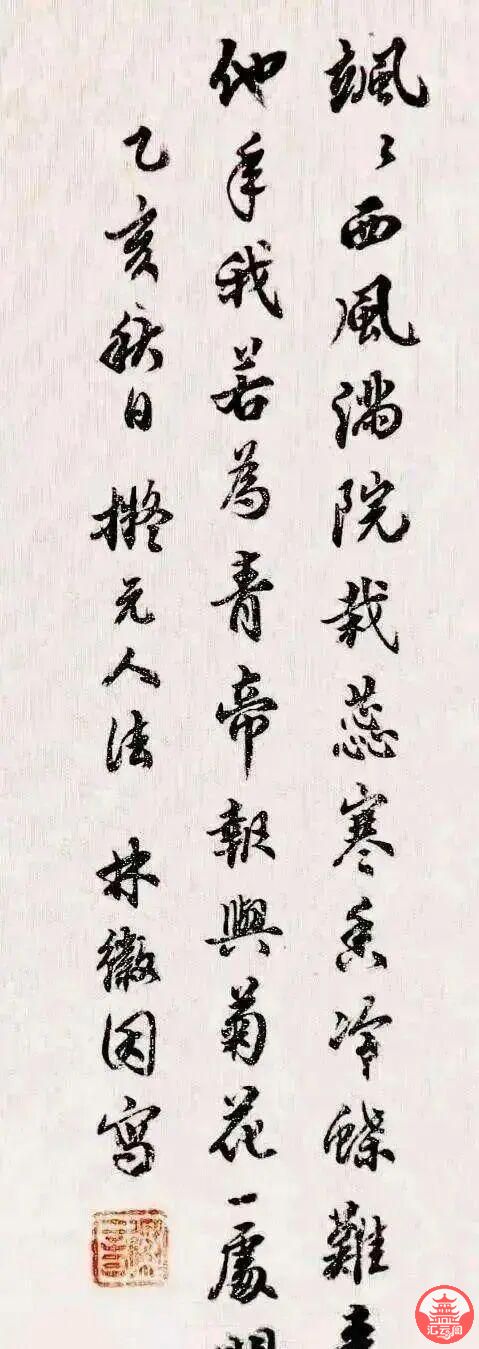 颯々西風滿院栽蕊寒香冷蝶難
他年我若為青帝報與菊花一處
乙亥秋日 擬元人法 林徽因寫
汇云阁